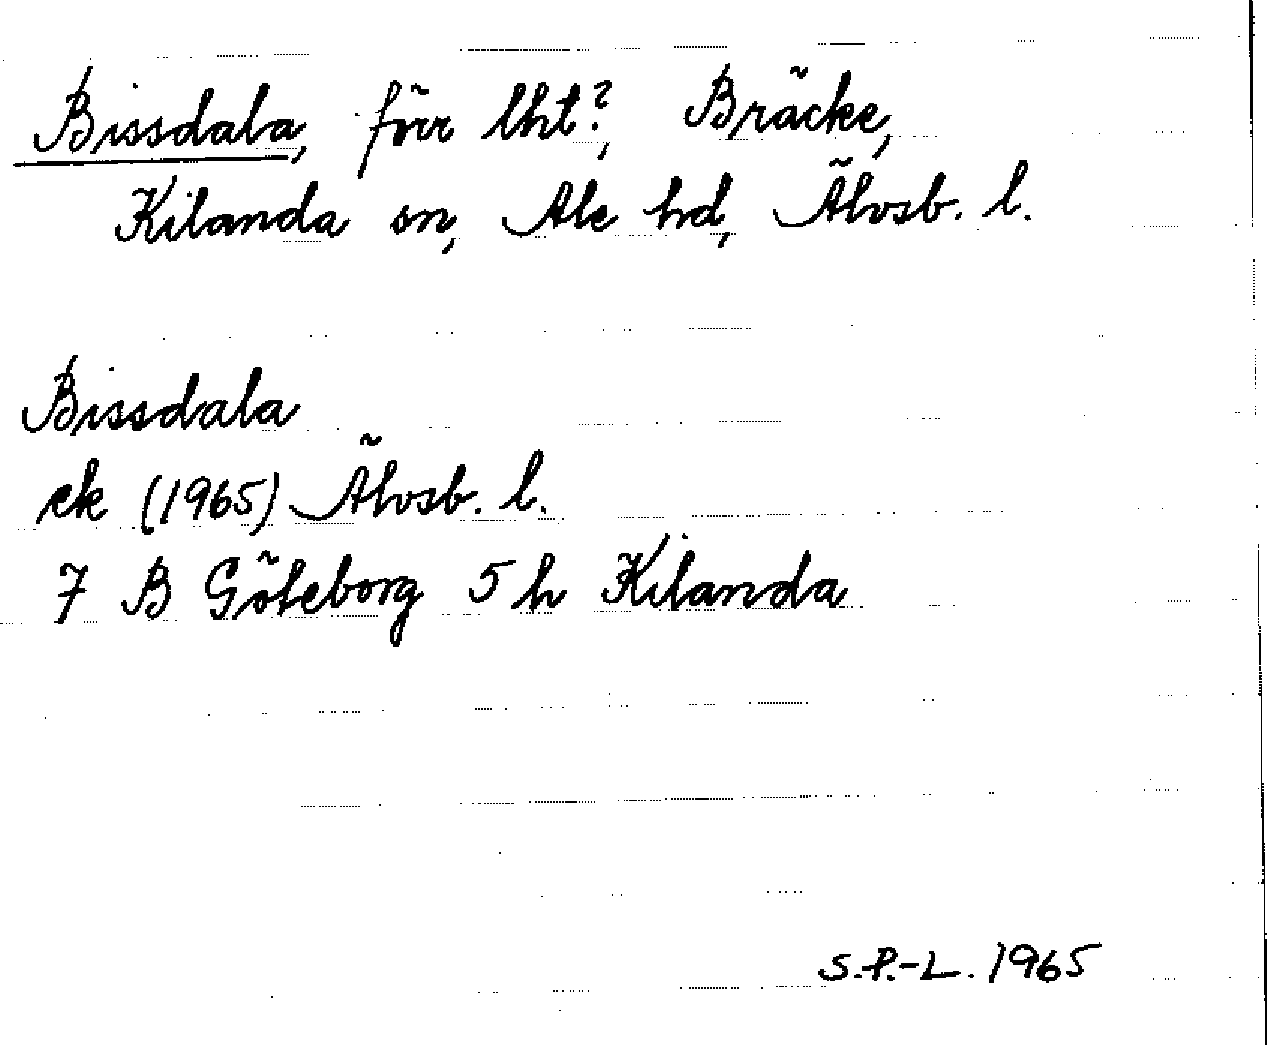 Bissdala, förr lht?, Bräcke,
Kilanda sn, Ale hd, Älvsb. l.
Bissdala
ek (1965) Älvsb. l.
7 B Göteborg 5 h Kilanda
S.P.-L. 1965